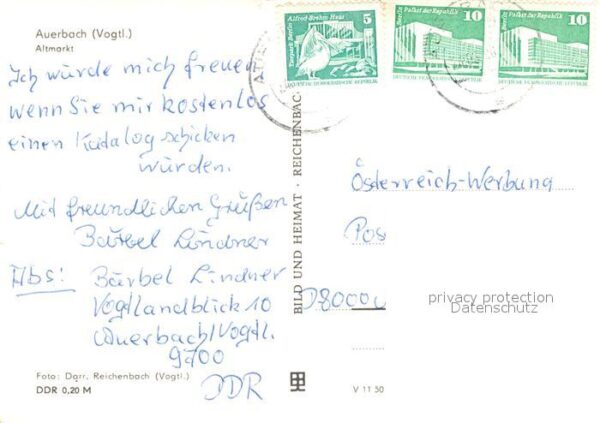 Auerbach (Vogtl.)
Altmarkt
Ich würde mich freuen
wenn Sie mir kostenlos
einen Katalog schicken
würden.
Mit freundlichen Grüßen
Bärbel Lindner
Abs: Bärbel Lindner
Vogtlandblick 10
Auerbach/Vogtl.
9700
DDR
Foto: Darr, Reichenbach (Vogtl.)
DDR 0,20 M
BILD UND HEIMAT · REICHENBAC
V 11 50
Alfred-Brehm-Haus
Tierpark Berlin
5
DEUTSCHE DEMOKRATISCHE REPUBLIK
Berlin Palast der Republik
10
DEUTSCHE DEMOKRATISCHE REPUBLIK
Berlin Palast der Republik
10
DEUTSCHE DEMOKRATISCHE REPUBLIK
Österreich-Werbung
Pos
D8000
privacy protection
Datenschutz